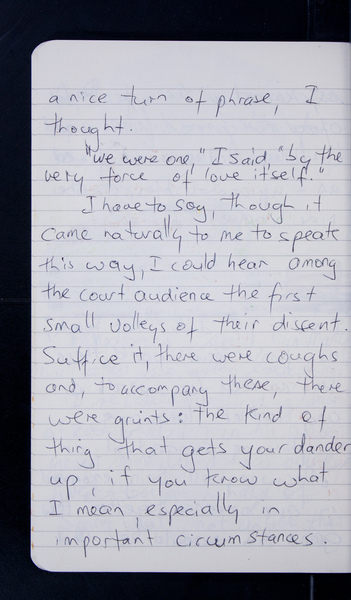 a nice turn of phrase, I
thought.
"we were one," I said, "by the
very force of love itself."
I have to say, though it
came naturally to me to speak
this way, I could hear among
the court audience the first
small volleys of their dissent.
Suffice it, there were coughs
and, to accompany these, there
were grunts: the kind of
thing that gets your dander
up, if you know what
I mean, especially in
important circumstances.